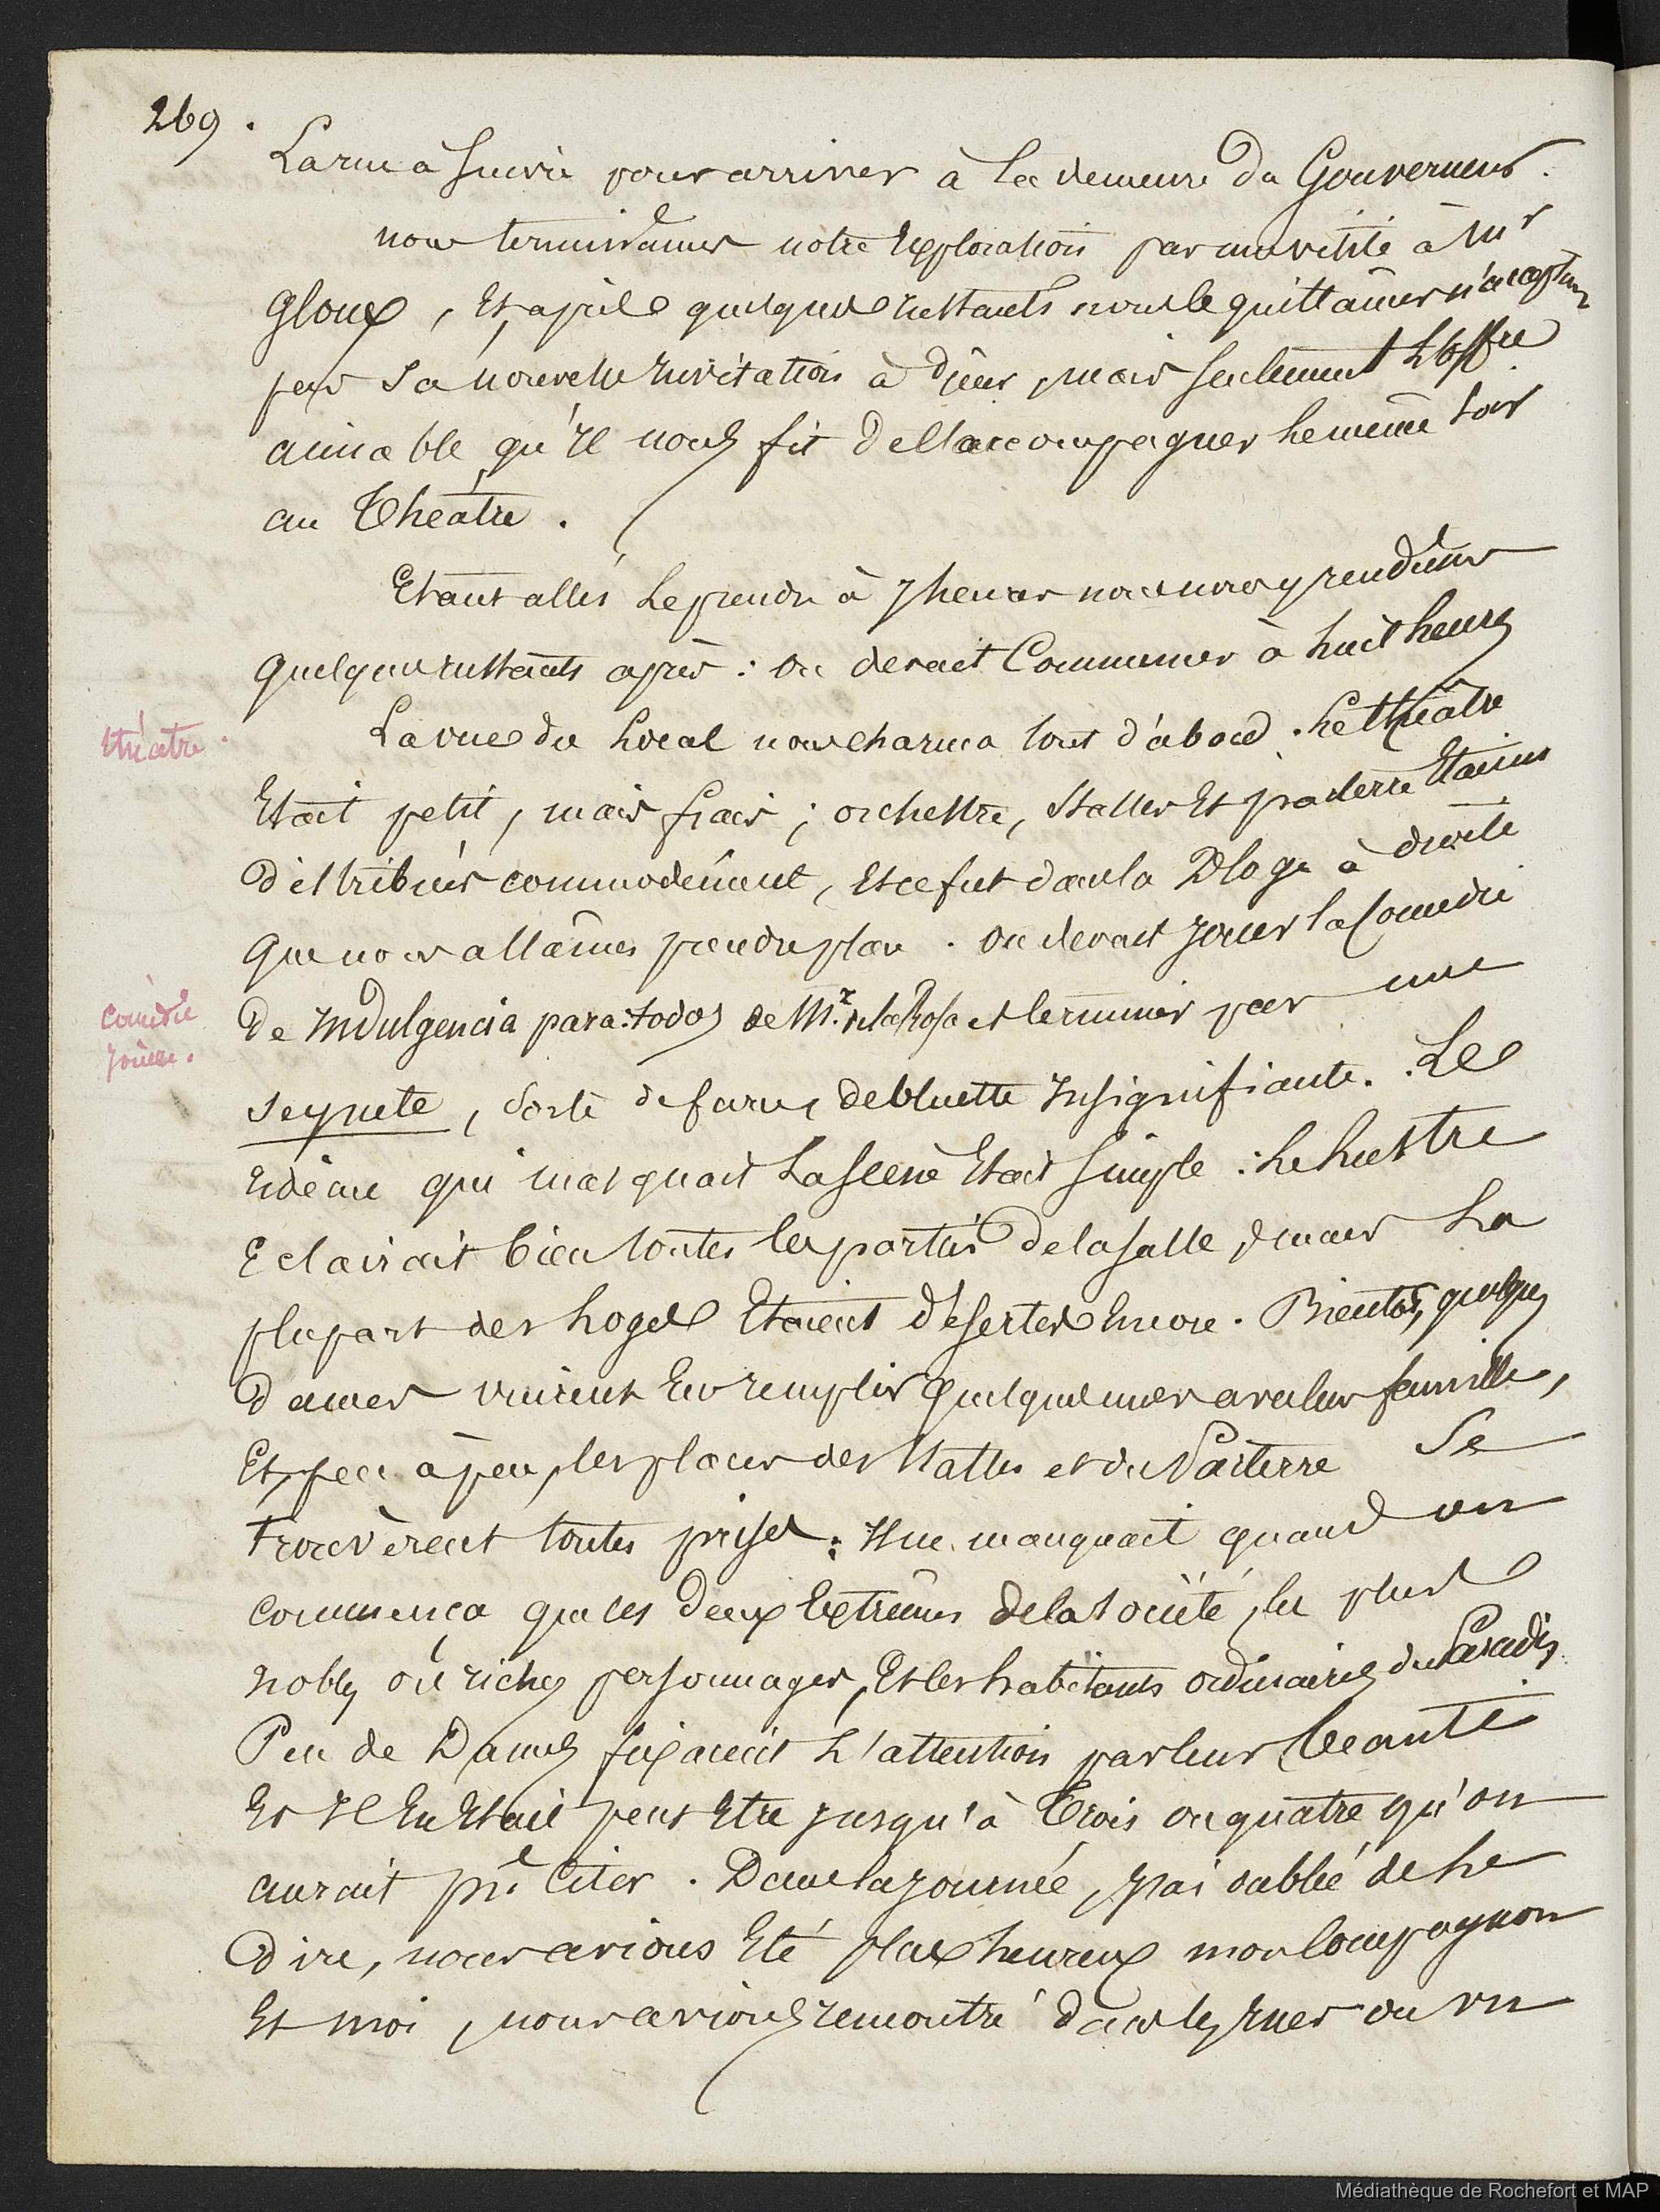 269.
La rue à suivre pour arriver à la demeure du Gouverneur.
nous terminâmes notre Exploration par une visite à Mr
Gloux, Et après quelques instants nous le quittâmes n'acceptant
pas sa nouvelle invitation à dîner, mais seulement L'offre
aimable qu'Il nous fit de l'accompagner le même soir
au Théâtre.
Etant allés le prendre à 7 heures nous nous y rendîmes
quelques instants après : on devait Commencer à huit heures
théatre.
La vue du local nous charma tout d'abord. Le théâtre
Etait petit, mais frais ; orchestre, Stalles Et parterre Etaient
distribués commodément, Et ce fut dans la 2e loge à droite
que nous allâmes prendre place. On devait jouer la Comédie
comédie
jouée.
de Indulgencia para todos de Mr. de la Rosa et terminer par une
seynete, sorte de farce, de bluette Insignifiante. Le
rideau qui masquait La scène Etait simple : le lustre
Eclairait bien toutes les parties de la salle, mais La
plupart des loges Etaient désertes Encore. Bientôt, quelques
dames vinrent En remplir quelques unes avec leur famille,
Et, peu à peu, les places des Stalles et du Parterre Se
trouvèrent toutes prises : Il ne manquait quand on
commença que les deux Extrêmes de la société, les plus
nobles où riches personnages, Et les habitants ordinaires du Paradis.
Peu de Dames fixaient L'attention par leur beauté
Et Il En Etait peut Etre jusqu'à Trois ou quatre qu'on
aurait pû Citer. Dans la journée, j'ai oublié de le
dire, nous avions Eté plus heureux mon Compagnon
Et moi, nous avions remontré dans les rues ou vu